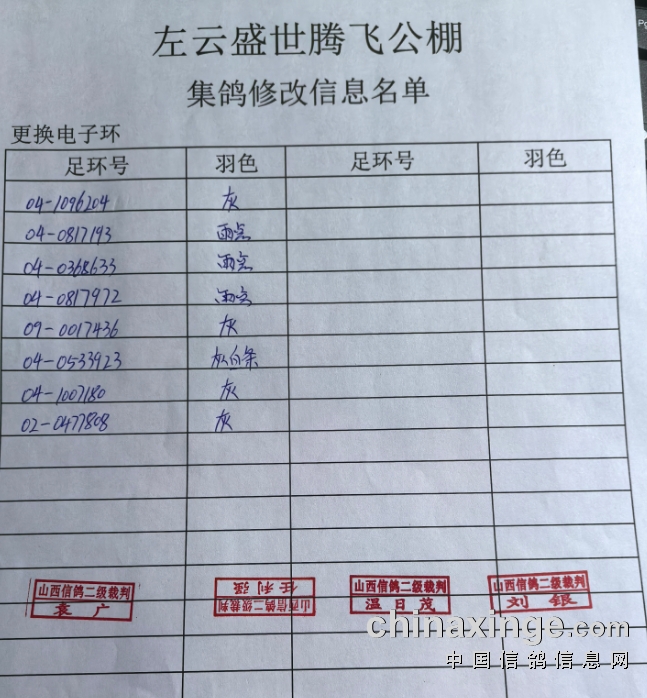 左云盛世腾飞公棚
集鸽修改信息名单
更换电子环
足环号 羽色 足环号 羽色
04-1096204 灰
04-0817193 雨点
04-0368633 雨点
04-0817972 雨点
09-0017436 灰
04-0533923 灰白条
04-1007180 灰
02-0477808 灰
山西信鸽二级裁判 任利强 山西信鸽二级裁判 山西信鸽二级裁判
袁广 山西信鸽二级裁判 温日茂 刘银
chinaxinge.com
中国信鸽信息网